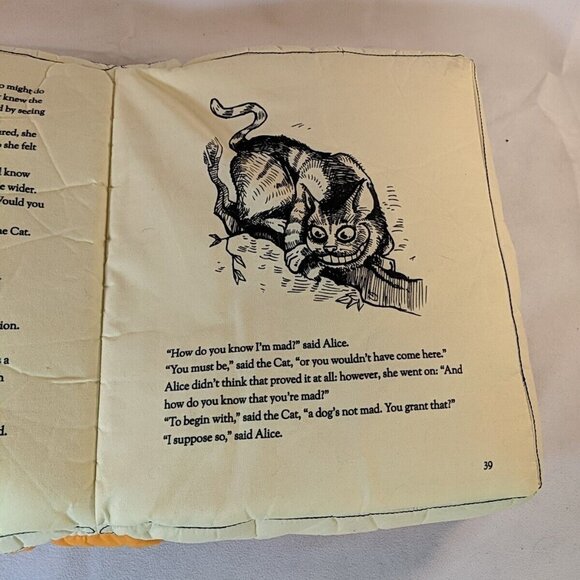 might do
knew the
by seeing
she
she felt
know
wider.
Would you
Cat.
a
"How do you know I'm mad?" said Alice.
"You must be," said the Cat, "or you wouldn't have come here."
Alice didn't think that proved it at all: however, she went on: "And
how do you know that you're mad?"
"To begin with," said the Cat, "a dog's not mad. You grant that?"
"I suppose so," said Alice.
39